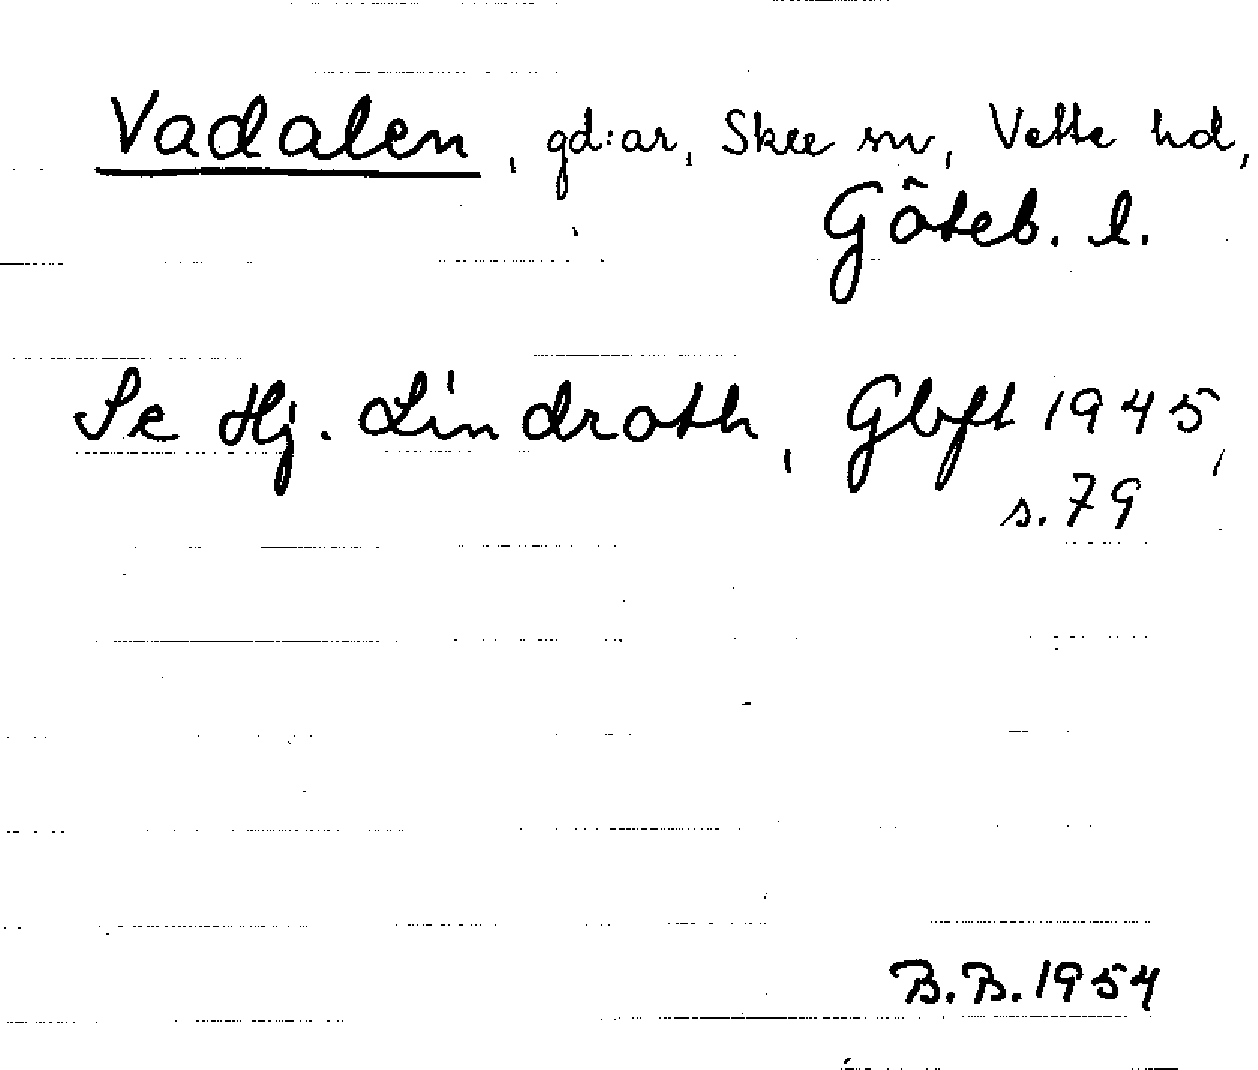 Vadalen, gd:ar, Skee sn, Vette hd,
Göteb. l.
Se Hj. Lindroth, Gbft 1945,
s. 79
B.B. 1954